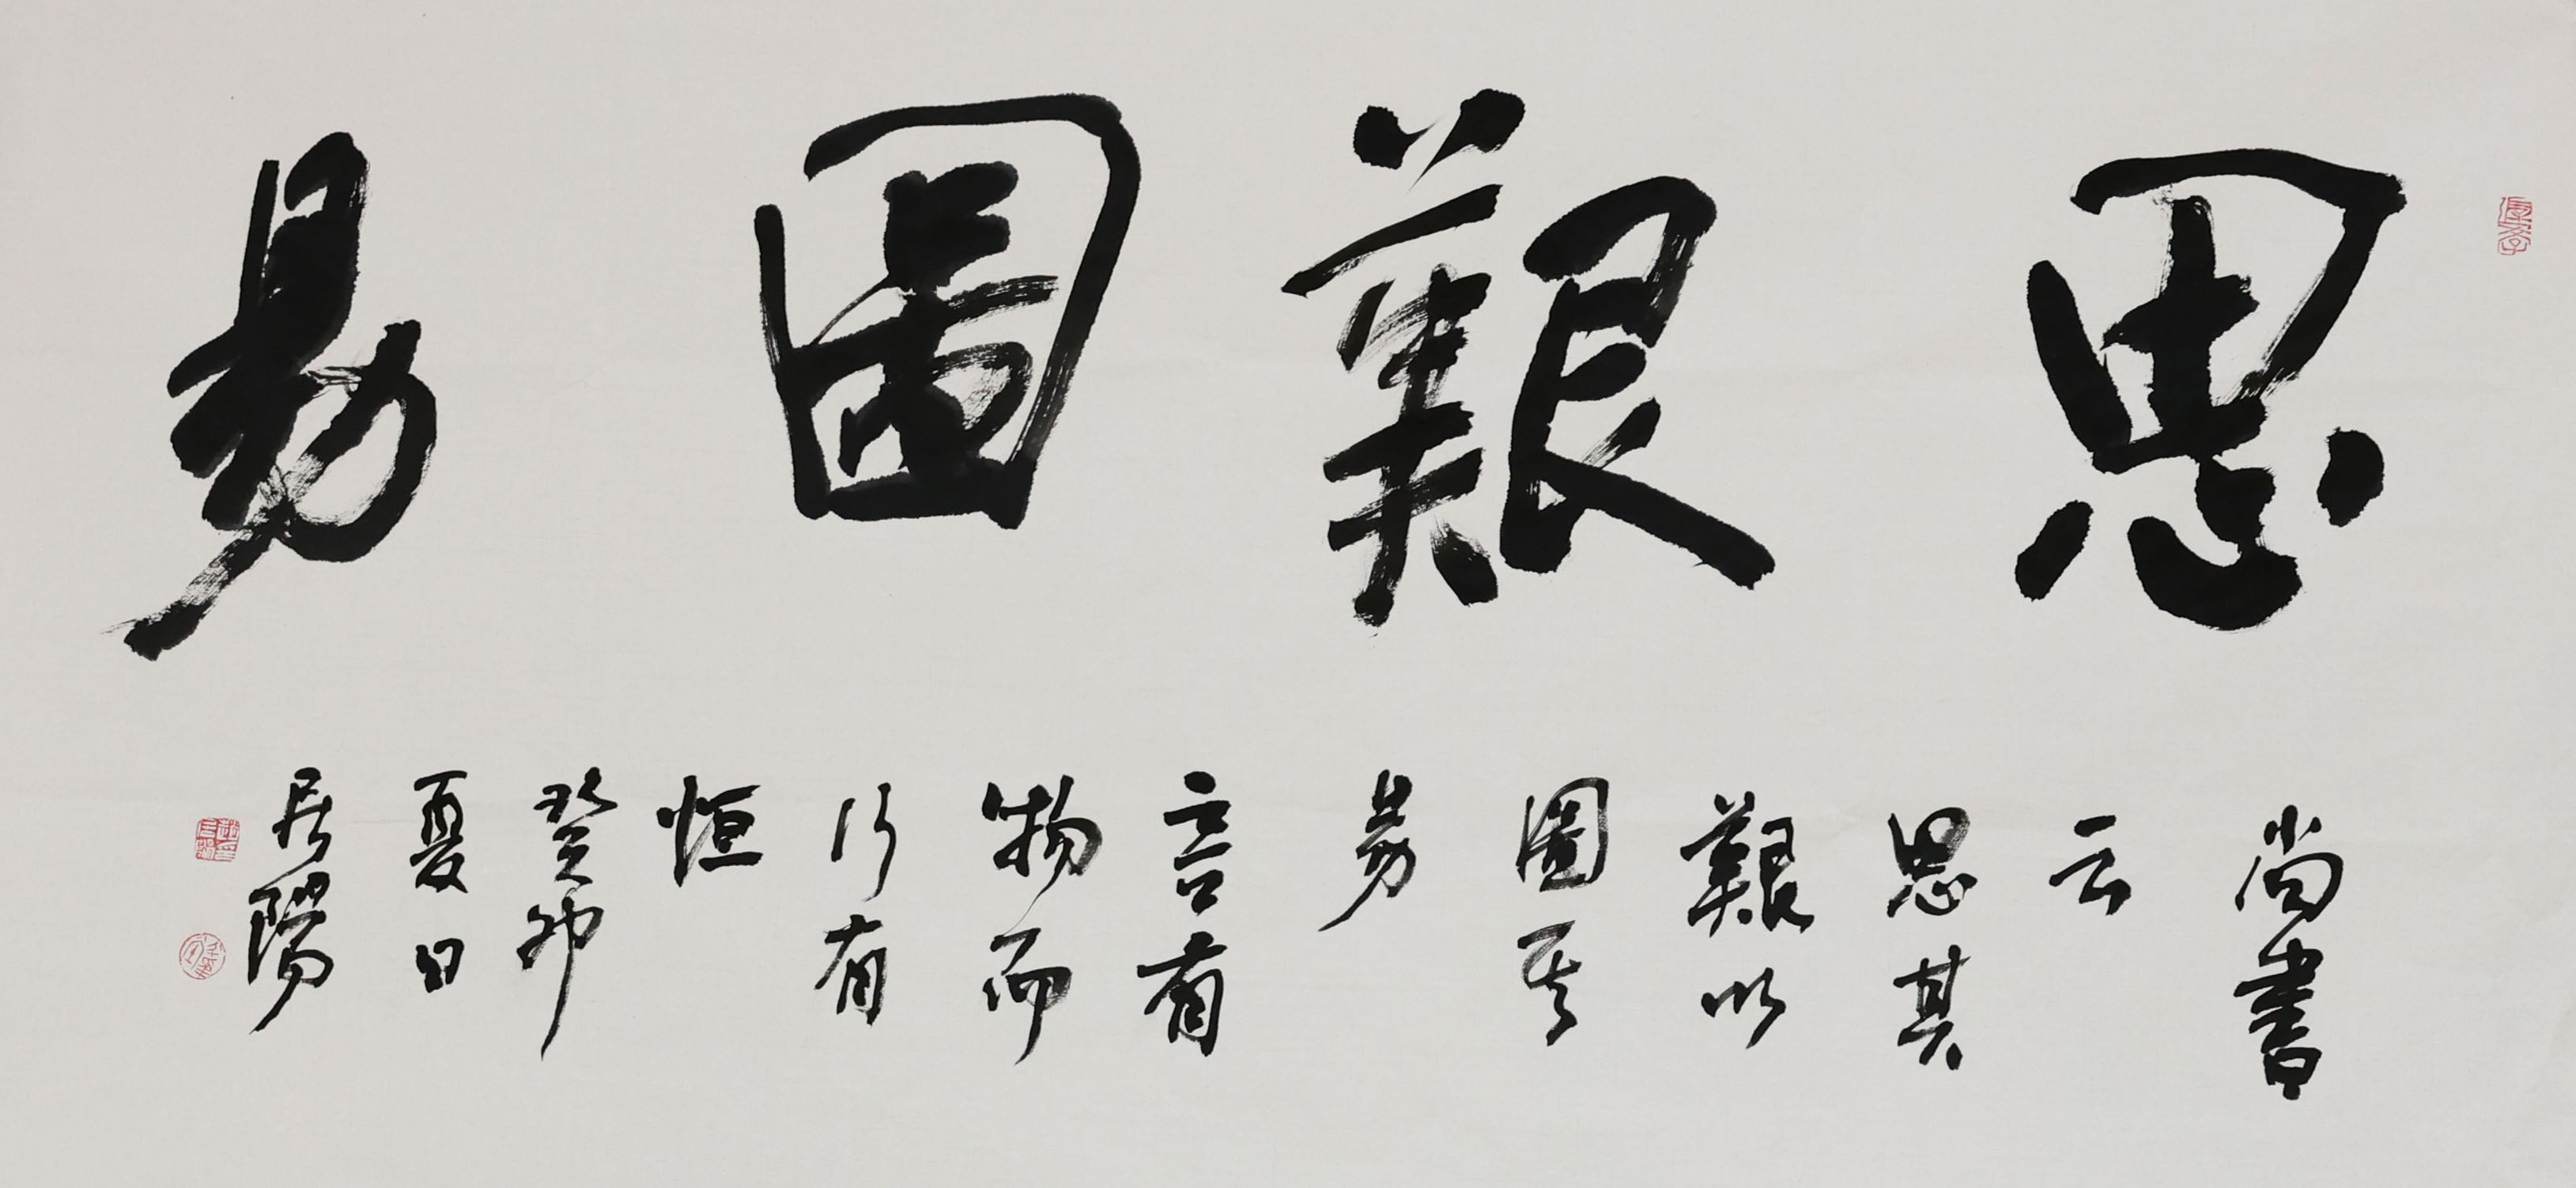 思艱圖易
尚書
云
思其
艱以
圖其
易
言有
物而
行有
恒
癸卯
夏日
居陽